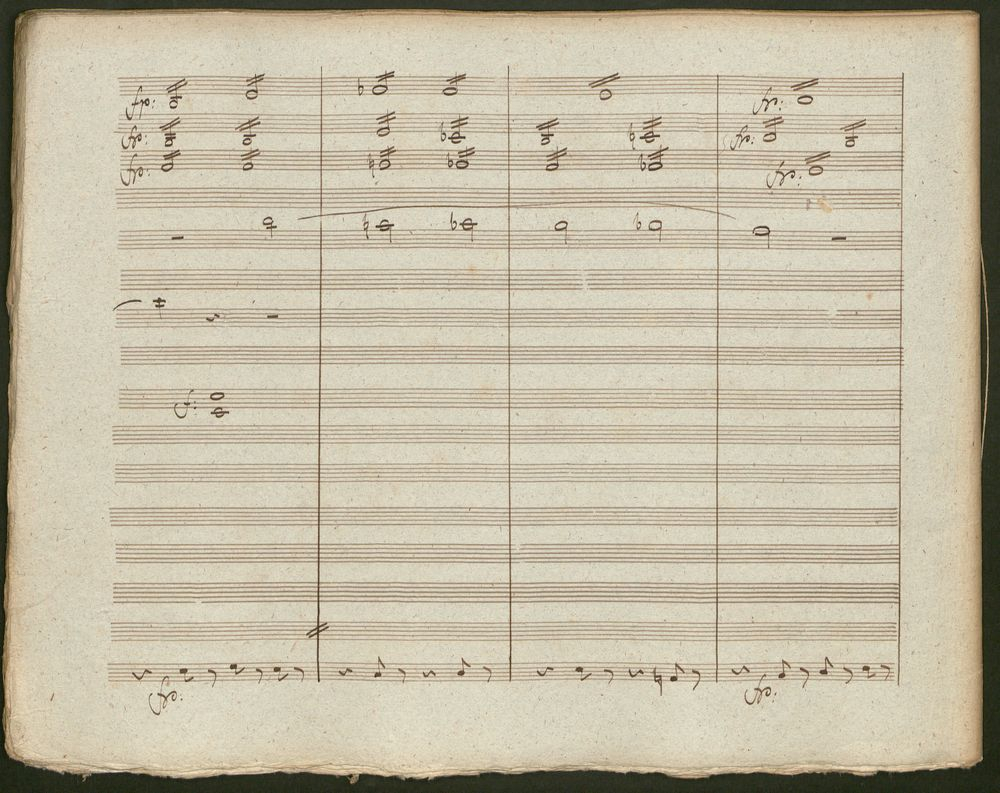 fp:
fp:
fp:
fp:
fp:
fp:
f:
fp:
fp: